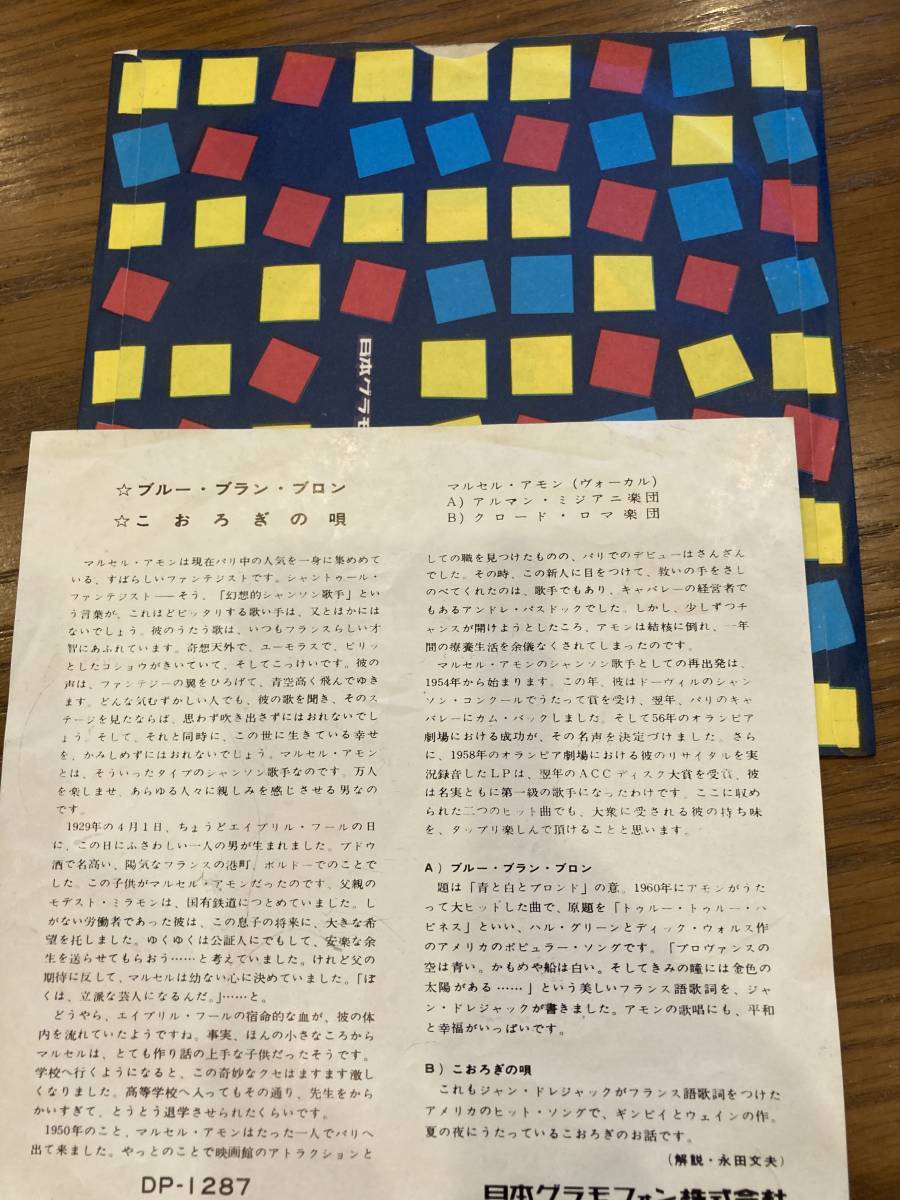 日本グラモ
☆ブルー・ブラン・ブロン
☆こおろぎの唄
マルセル・アモン(ヴォーカル)
A)アルマン・ミジアニ楽団
B)クロード・ロマ楽団
マルセル・アモンは現在パリ中の人気を一身に集めめて
いる、すばらしいファンテジストです。シャントゥール・
ファンテジスト――そう、「幻想的シャンソン歌手」とい
う言葉が、これほどピッタリする歌い手は、又とほかには
ないでしょう。彼のうたう歌は、いつもフランスらしい才
智にあふれています。奇想天外で、ユーモラスで、ピリッ
としたコショウがきいていて、そしてこっけいです。彼の
声は、ファンテジーの翼をひろげて、青空高く飛んでゆき
ます。どんな気むずかしい人でも、彼の歌を聞き、そのス
テージを見たならば、思わず吹き出さずにはおれないでし
ょう。そして、それと同時に、この世に生きている幸せ
を、かみしめずにはおれないでしょう。マルセル・アモン
とは、そういったタイプのシャンソン歌手なのです。万人
を楽しませ、あらゆる人々に親しみを感じさせる男なの
です。
1929年の4月1日、ちょうどエイプリル・フールの日
に、この日にふさわしい一人の男が生まれました。ブドウ
酒で名高い、陽気なフランスの港町、ボルドーでのことで
した。この子供がマルセル・アモンだったのです。父親の
モデスト・ミラモンは、国有鉄道につとめていました。し
がない労働者であった彼は、この息子の将来に、大きな希
望を托しました。ゆくゆくは公証人にでもして、安楽な余
生を送らせてもらおう……と考えていました。けれど父の
期待に反して、マルセルは幼ない心に決めていました。「ぼ
くは、立派な芸人になるんだ。」……と。
どうやら、エイプリル・フールの宿命的な血が、彼の体
内を流れていたようですね。事実、ほんの小さなころから
マルセルは、とても作り話の上手な子供だったそうです。
学校へ行くようになると、この奇妙なクセはますます激し
くなりました。高等学校へ入ってもその通り、先生をから
かいすぎて、とうとう退学させられたくらいです。
1950年のこと、マルセル・アモンはたった一人でパリへ
出て来ました。やっとのことで映画館のアトラクションと
しての職を見つけたものの、パリでのデビューはさんざん
でした。その時、この新人に目をつけて、救いの手をさし
のべてくれたのは、歌手でもあり、キャバレーの経営者で
もあるアンドレ・パスドックでした。しかし、少しずつチ
ャンスが開けようとしたころ、アモンは結核に倒れ、一年
間の療養生活を余儀なくされてしまったのです。
マルセル・アモンのシャンソン歌手としての再出発は、
1954年から始まります。この年、彼はドーヴィルのシャン
ソン・コンクールでうたって賞を受け、翌年、パリのキャ
バレーにカム・バックしました。そして56年のオランピア
劇場における成功が、その名声を決定づけました。さら
に、1958年のオランピア劇場における彼のリサイタルを実
況録音したLPは、翌年のACCディスク大賞を受賞、彼
は名実ともに第一級の歌手になったわけです。ここに収め
られた二つのヒット曲でも、大衆に受される彼の持ち味
を、タップリ楽しんで頂けることと思います。
A)ブルー・ブラン・ブロン
題は「青と白とブロンド」の意。1960年にアモンがうた
って大ヒットした曲で、原題を「トゥルー・トゥルー・ハ
ピネス」といい、ハル・グリーンとディック・ウォルス作
のアメリカのポピュラー・ソングです。「プロヴァンスの
空は青い。かもめや船は白い。そしてきみの瞳には金色の
太陽がある……」という美しいフランス語歌詞を、ジャ
ン・ドレジャックが書きました。アモンの歌唱にも、平和
と幸福がいっぱいです。
B)こおろぎの唄
これもジャン・ドレジャックがフランス語歌詞をつけた
アメリカのヒット・ソングで、ギンビイとウェインの作。
夏の夜にうたっているこおろぎのお話です。
(解説・永田文夫)
DP-1287
日本グラモフォン株式会社